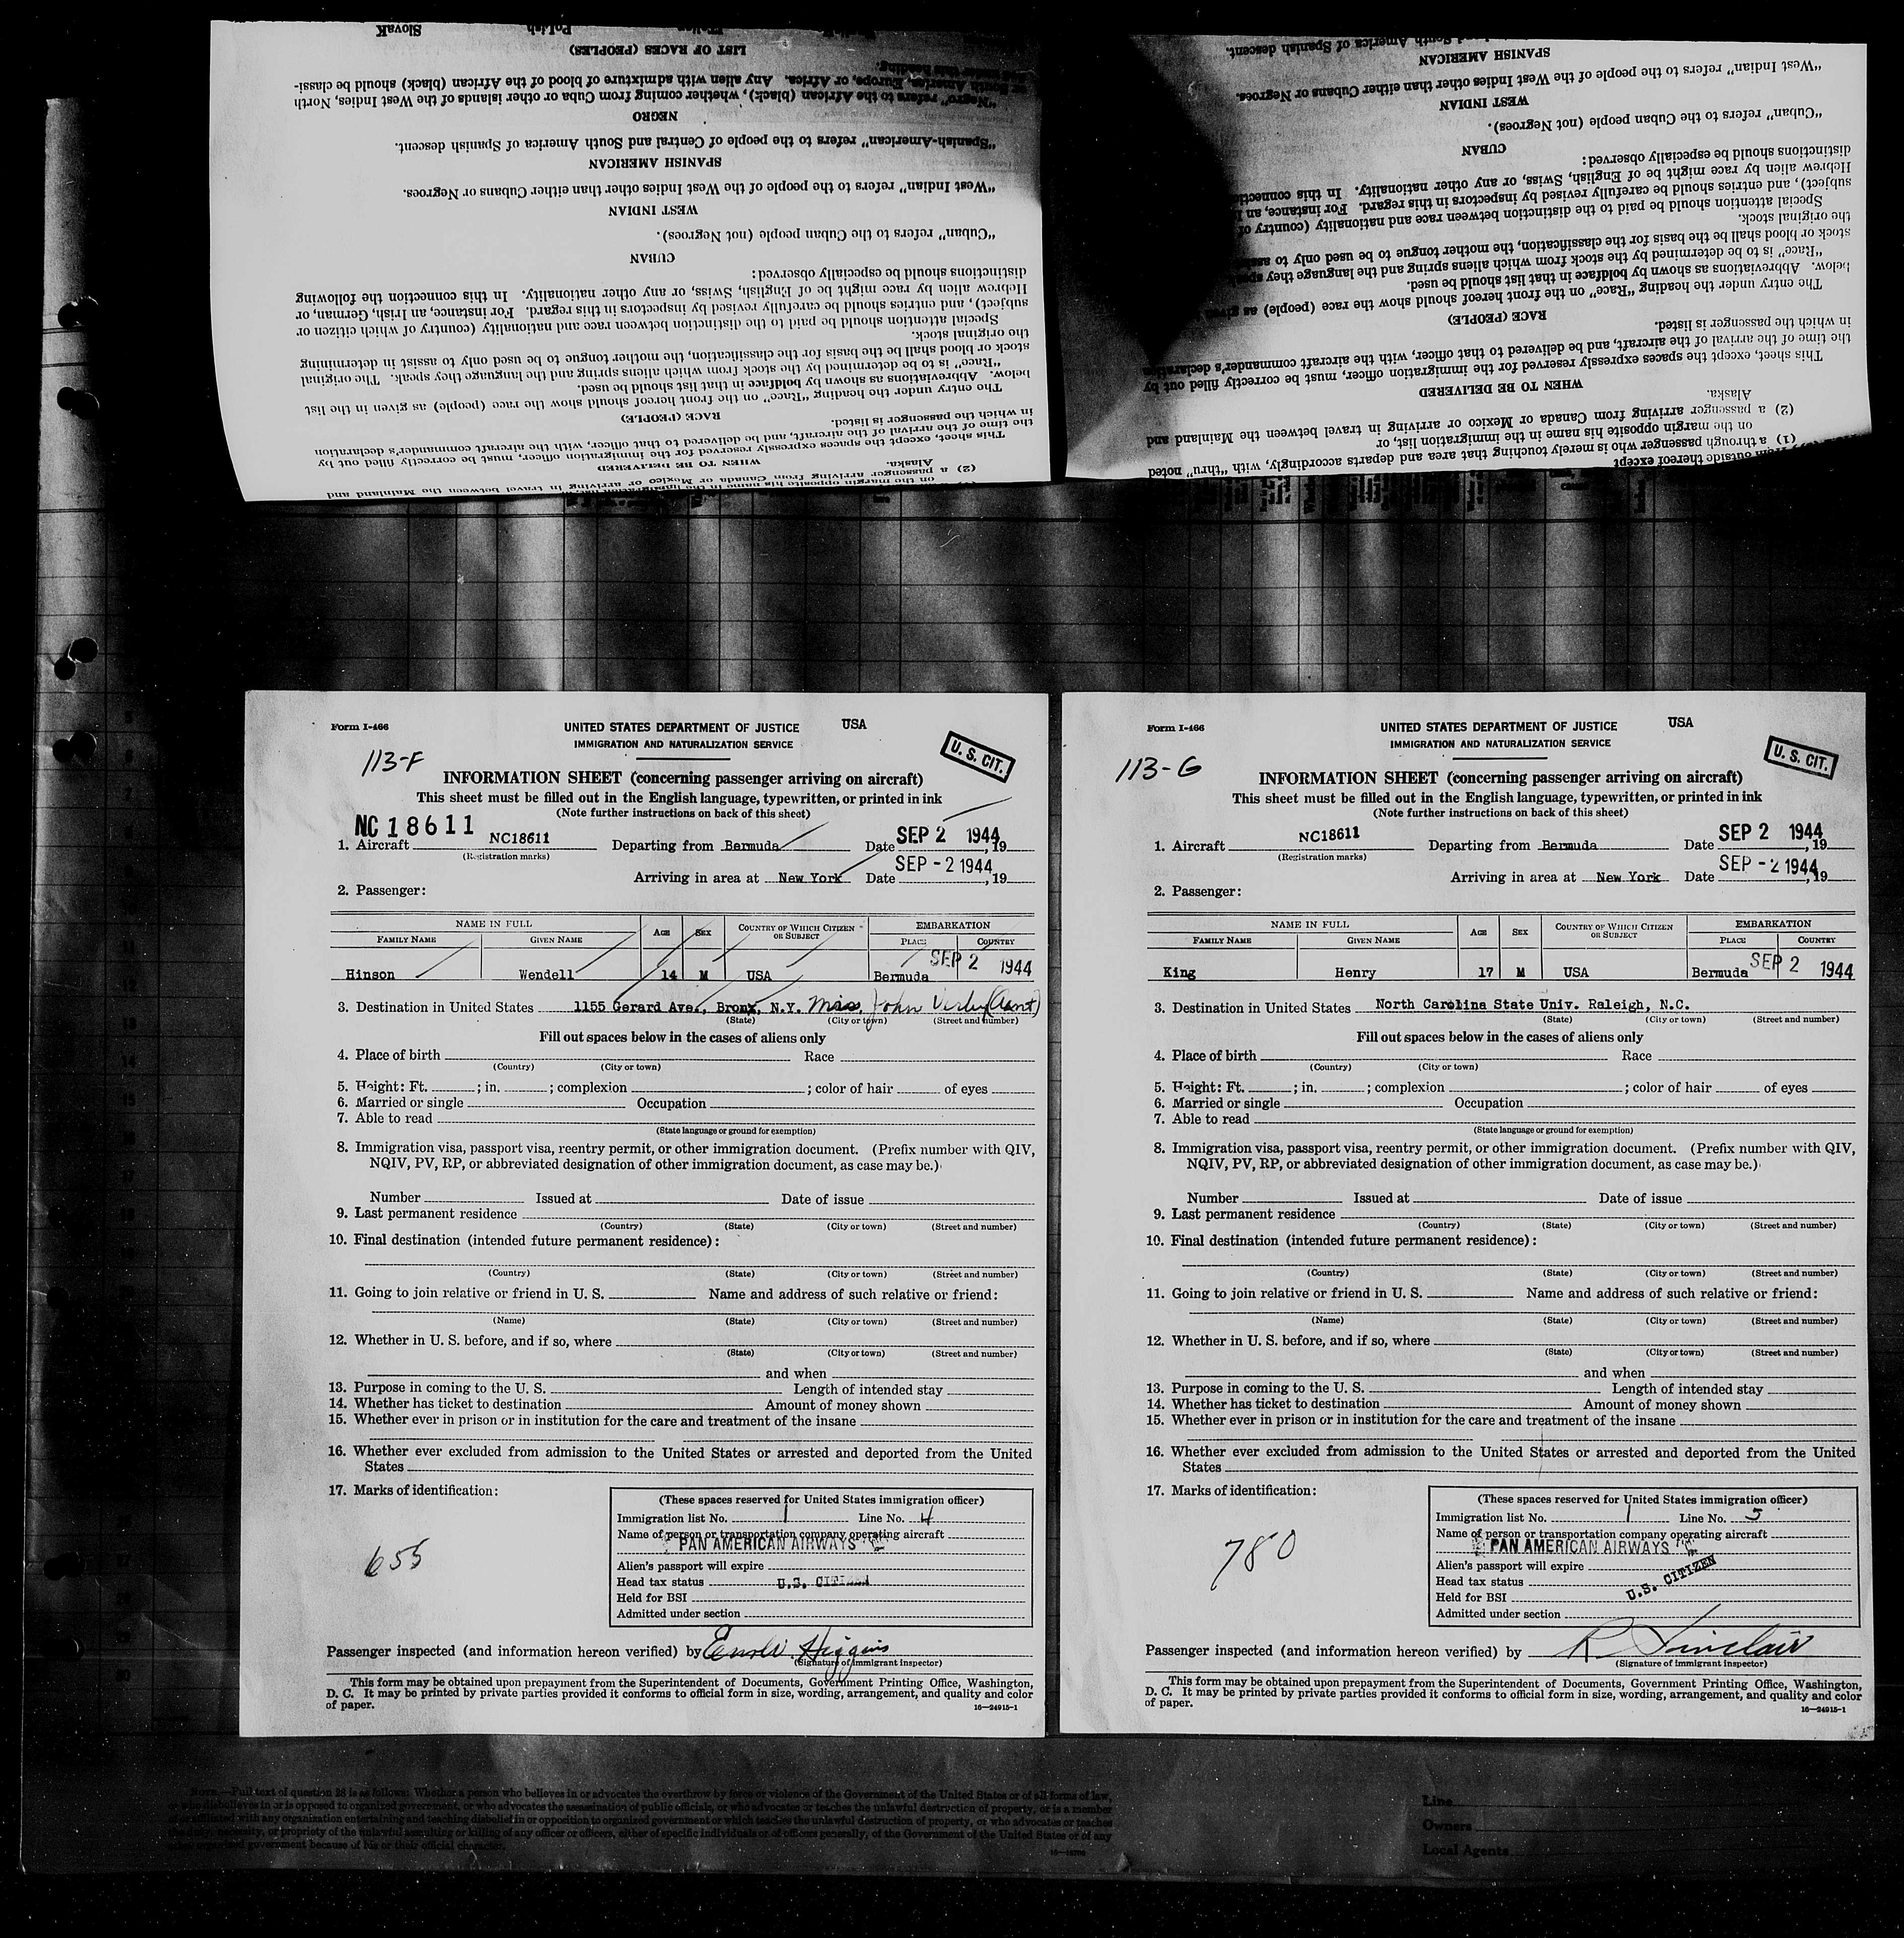 Slovak
Polish
LIST OF RACES (PEOPLES)
"Negro" refers to the African (black), whether coming from Cuba or other islands of the West Indies, North
or South America, Europe, or Africa. Any alien with admixture of blood of the African (black) should be class-
NEGRO
"Spanish-American" refers to the people of Central and South America of Spanish descent.
SPANISH AMERICAN
"West Indian" refers to the people of the West Indies other than either Cubans or Negroes.
WEST INDIAN
"Cuban" refers to the Cuban people (not Negroes).
CUBAN
distinctions should be especially observed:
Hebrew alien by race might be of English, Swiss, or any other nationality. In this connection the following
subject), and entries should be carefully revised by inspectors in this regard. For instance, an Irish, German, or
Special attention should be paid to the distinction between race and nationality (country of which citizen or
the original stock.
stock or blood shall be the basis for the classification, the mother tongue to be used only to assist in determining
"Race" is to be determined by the stock from which aliens spring and the language they speak. The original
below. Abbreviations as shown by boldface in that list should be used.
The entry under the heading "Race" on the front hereof should show the race (people) as given in the list
RACE (PEOPLE)
in which the passenger is listed.
the time of the arrival of the aircraft, and be delivered to that officer, with the aircraft commander's declaration
This sheet, except the spaces expressly reserved for the immigration officer, must be correctly filled out by
WHEN TO BE DELIVERED
Alaska.
(2) a passenger arriving from Canada or Mexico or arriving in travel between the Mainland and
South America of Spanish descent.
SPANISH AMERICAN
"West Indian" refers to the people of the West Indies other than either Cubans or Negroes.
WEST INDIAN
"Cuban" refers to the Cuban people (not Negroes).
CUBAN
distinctions should be especially observed:
Hebrew alien by race might be of English, Swiss, or any other nationality. In this connection
subject), and entries should be carefully revised by inspectors in this regard. For instance, an
Special attention should be paid to the distinction between race and nationality (country of
the original stock.
stock or blood shall be the basis for the classification, the mother tongue to be used only to
"Race" is to be determined by the stock from which aliens spring and the language they
below. Abbreviations as shown by boldface in that list should be used.
The entry under the heading "Race" on the front hereof should show the race (people) as given
RACE (PEOPLE)
in which the passenger is listed.
the time of the arrival of the aircraft, and be delivered to that officer, with the aircraft commander's declaration
This sheet, except the spaces expressly reserved for the immigration officer, must be correctly filled out by
WHEN TO BE DELIVERED
Alaska.
(2) a passenger arriving from Canada or Mexico or arriving in travel between the Mainland and
on the margin opposite his name in the immigration list, or
(1) a through passenger who is merely touching that area and departs accordingly, with "thru" noted
from outside thereof except
Form I-466
UNITED STATES DEPARTMENT OF JUSTICE USA
IMMIGRATION AND NATURALIZATION SERVICE
113-F
U. S. CIT.
INFORMATION SHEET (concerning passenger arriving on aircraft)
This sheet must be filled out in the English language, typewritten, or printed in ink
(Note further instructions on back of this sheet)
NC18611
1. Aircraft NC18611 Departing from Bermuda Date SEP 2 1944, 19
(Registration marks)
Arriving in area at New York Date SEP - 2 1944, 19
2. Passenger:
NAME IN FULL AGE SEX COUNTRY OF WHICH CITIZEN OR SUBJECT EMBARKATION
FAMILY NAME GIVEN NAME PLACE COUNTRY
Hinson Wendell 14 M USA Bermuda SEP 2 1944
3. Destination in United States 1155 Gerard Ave., Bronx, N.Y. Miss. John Virly (Aunt)
(State) (City or town) (Street and number)
Fill out spaces below in the cases of aliens only
4. Place of birth Race
(Country) (City or town)
5. Height: Ft. ; in. ; complexion ; color of hair of eyes
6. Married or single Occupation
7. Able to read
(State language or ground for exemption)
8. Immigration visa, passport visa, reentry permit, or other immigration document. (Prefix number with QIV,
NQIV, PV, RP, or abbreviated designation of other immigration document, as case may be.)
Number Issued at Date of issue
9. Last permanent residence
(Country) (State) (City or town) (Street and number)
10. Final destination (intended future permanent residence):
(Country) (State) (City or town) (Street and number)
11. Going to join relative or friend in U. S. Name and address of such relative or friend:
(Name) (State) (City or town) (Street and number)
12. Whether in U. S. before, and if so, where
(State) (City or town) (Street and number)
and when
13. Purpose in coming to the U. S. Length of intended stay
14. Whether has ticket to destination Amount of money shown
15. Whether ever in prison or in institution for the care and treatment of the insane
16. Whether ever excluded from admission to the United States or arrested and deported from the United
States
17. Marks of identification:
655
(These spaces reserved for United States immigration officer)
Immigration list No. 1 Line No. 4
Name of person or transportation company operating aircraft
PAN AMERICAN AIRWAYS
Alien's passport will expire
Head tax status U.S. CITIZEN
Held for BSI
Admitted under section
Passenger inspected (and information hereon verified) by Higgins
(Signature of immigrant inspector)
This form may be obtained upon prepayment from the Superintendent of Documents, Government Printing Office, Washington,
D. C. It may be printed by private parties provided it conforms to official form in size, wording, arrangement, and quality and color
of paper. 16—24915-1
Form I-466
UNITED STATES DEPARTMENT OF JUSTICE USA
IMMIGRATION AND NATURALIZATION SERVICE
113-G
U. S. CIT.
INFORMATION SHEET (concerning passenger arriving on aircraft)
This sheet must be filled out in the English language, typewritten, or printed in ink
(Note further instructions on back of this sheet)
1. Aircraft NC18611 Departing from Bermuda Date SEP 2 1944, 19
(Registration marks)
Arriving in area at New York Date SEP - 2 1944, 19
2. Passenger:
NAME IN FULL AGE SEX COUNTRY OF WHICH CITIZEN OR SUBJECT EMBARKATION
FAMILY NAME GIVEN NAME PLACE COUNTRY
King Henry 17 M USA Bermuda SEP 2 1944
3. Destination in United States North Carolina State Univ. Raleigh, N.C.
(State) (City or town) (Street and number)
Fill out spaces below in the cases of aliens only
4. Place of birth Race
(Country) (City or town)
5. Height: Ft. ; in. ; complexion ; color of hair of eyes
6. Married or single Occupation
7. Able to read
(State language or ground for exemption)
8. Immigration visa, passport visa, reentry permit, or other immigration document. (Prefix number with QIV,
NQIV, PV, RP, or abbreviated designation of other immigration document, as case may be.)
Number Issued at Date of issue
9. Last permanent residence
(Country) (State) (City or town) (Street and number)
10. Final destination (intended future permanent residence):
(Country) (State) (City or town) (Street and number)
11. Going to join relative or friend in U. S. Name and address of such relative or friend:
(Name) (State) (City or town) (Street and number)
12. Whether in U. S. before, and if so, where
(State) (City or town) (Street and number)
and when
13. Purpose in coming to the U. S. Length of intended stay
14. Whether has ticket to destination Amount of money shown
15. Whether ever in prison or in institution for the care and treatment of the insane
16. Whether ever excluded from admission to the United States or arrested and deported from the United
States
17. Marks of identification:
780
(These spaces reserved for United States immigration officer)
Immigration list No. 1 Line No. 5
Name of person or transportation company operating aircraft
PAN AMERICAN AIRWAYS
Alien's passport will expire
Head tax status U.S. CITIZEN
Held for BSI
Admitted under section
Passenger inspected (and information hereon verified) by R Sinclair
(Signature of immigrant inspector)
This form may be obtained upon prepayment from the Superintendent of Documents, Government Printing Office, Washington,
D. C. It may be printed by private parties provided it conforms to official form in size, wording, arrangement, and quality and color
of paper. 16—24915-1
NOTE.—Full text of question 28 is as follows: Whether a person who believes in or advocates the overthrow by force or violence of the Government of the United States or of all forms of law,
or who disbelieves in or is opposed to organized government, or who advocates the assassination of public officials, or who advocates or teaches the unlawful destruction of property, or is a member
of or affiliated with any organization entertaining and teaching disbelief in or opposition to organized government or which teaches the unlawful destruction of property, or who advocates or teaches
the duty, necessity, or propriety of the unlawful assaulting or killing of any officer or officers, either of specific individuals or of officers generally, of the Government of the United States or of any
other organized government because of his or their official character.
Line
Owners
Local Agents